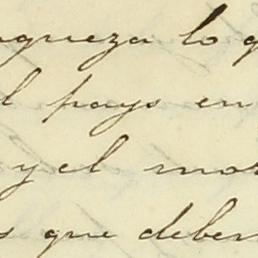 aqueza lo q
l pays en
y el mor
s que deben